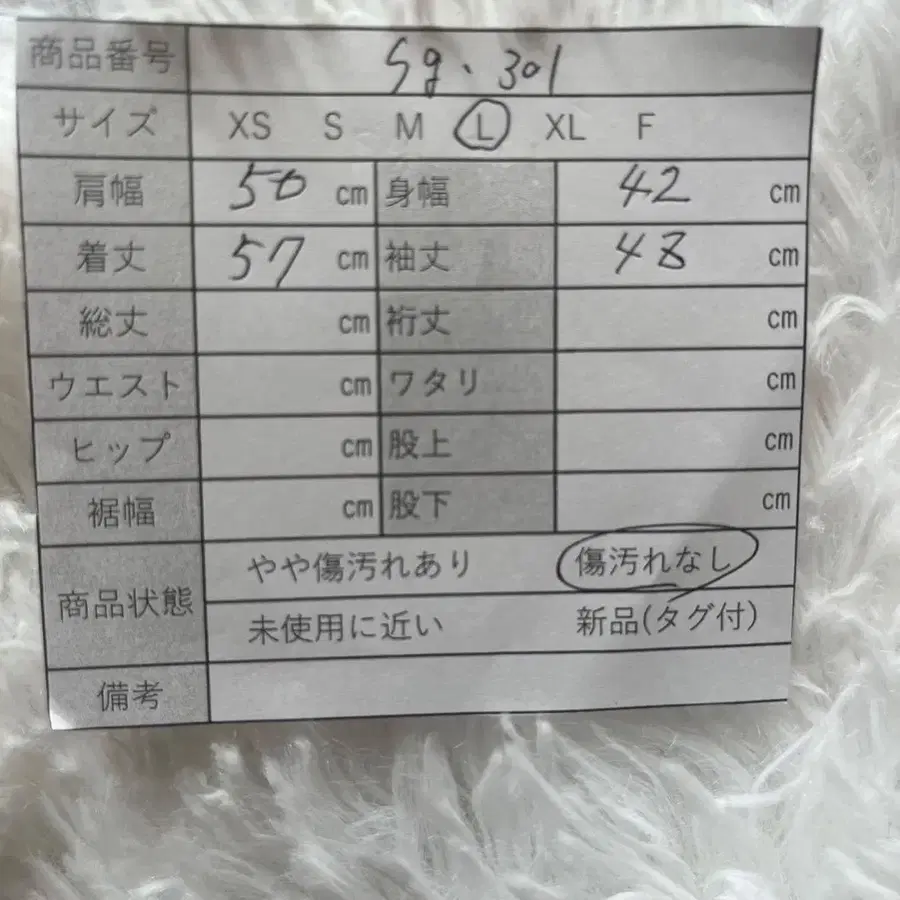 商品番号 Sg. 301
サイズ XS S M L XL F
肩幅 50 cm 身幅 42 cm
着丈 57 cm 袖丈 48 cm
総丈 cm 裄丈 cm
ウエスト cm ワタリ cm
ヒップ cm 股上 cm
裾幅 cm 股下 cm
商品状態 やや傷汚れあり 傷汚れなし
未使用に近い 新品(タグ付)
備考